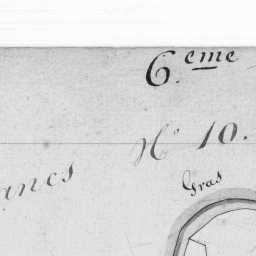 6.eme
No 10.
Gras
ancs